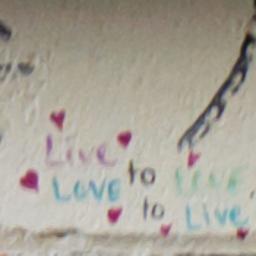 Live
to LOVE
LOVE
to Live